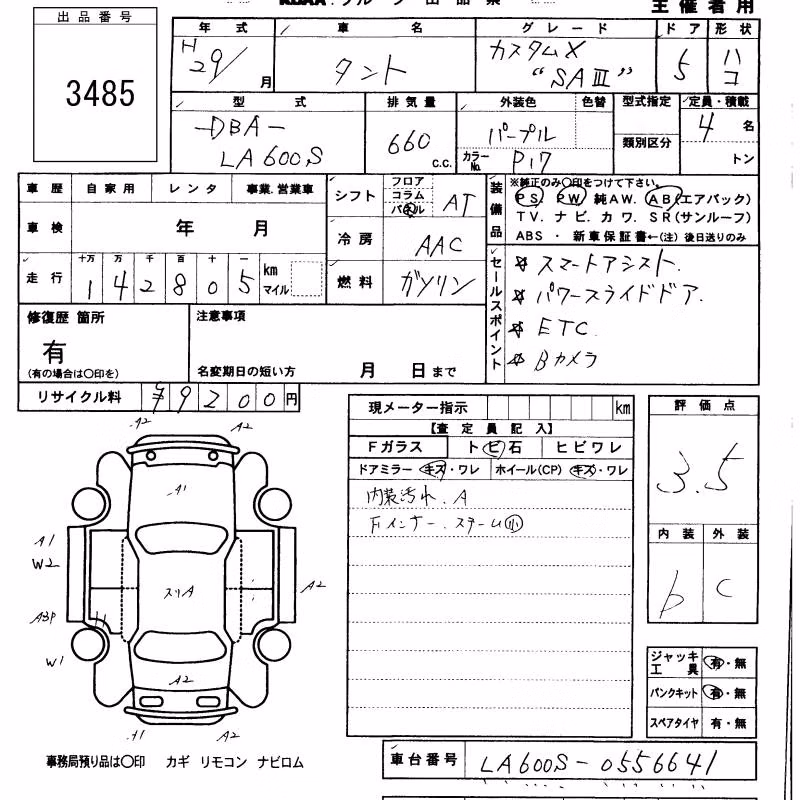 主催者用
出品番号
3485
年式 車名 グレード ドア 形状
H29/月 タント カスタムX "SAⅢ" 5 ハコ
型式 排気量 外装色 色替 型式指定 定員・積載
DBA-LA600S 660 c.c. パープル 類別区分 4名
カラーNo. P17 トン
車歴 自家用 レンタ 事業.営業車
車検 年 月
走行 十万 万 千 百 十 一
1 4 2 8 0 5 km マイル
シフト フロア コラム パネル AT
冷房 AAC
燃料 ガソリン
装備品 ※純正のみ〇印をつけて下さい。
PS. PW. 純AW. AB(エアバック)
TV. ナビ. カワ. SR(サンルーフ)
ABS ・ 新車保証書←(注) 後日送りのみ
セールスポイント
☆ スマートアシスト.
☆ パワースライドドア.
☆ ETC.
☆ Bカメラ
修復歴 箇所
有
(有の場合は〇印を)
注意事項
名変期日の短い方 月 日まで
リサイクル料 ¥9200円
現メーター指示 km
【査定員記入】
Fガラス トビ石 ヒビワレ
ドアミラー キズ・ワレ ホイール(CP) キズ・ワレ
内装汚れ. A
Fインナー. ステーム小
評価点
3.5
内装 外装
b C
ジャッキ工具 有・無
パンクキット 有・無
スペアタイヤ 有・無
A2 A2
A1
A1
W2
スリA
A2
A3P
W1
A2
A1 A2
事務局預り品は〇印 カギ リモコン ナビロム
車台番号 LA600S-0556641